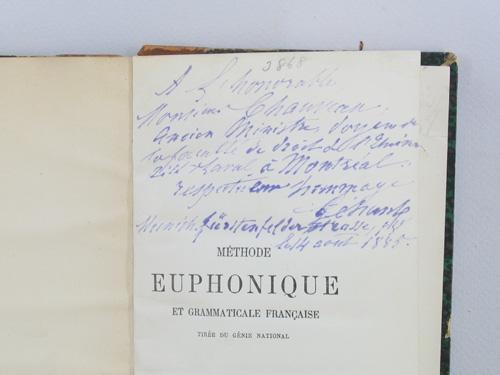 3868
A l'honorable
Monsieur Chauveau,
Ancien Ministre, doyen de
la faculté de droit de l'Univer
sité Laval à Montréal.
respectueux hommage
Munich, Fürstenfelder Strasse,
le 4 août 1885.
MÉTHODE
EUPHONIQUE
ET GRAMMATICALE FRANÇAISE
TIRÉE DU GÉNIE NATIONAL